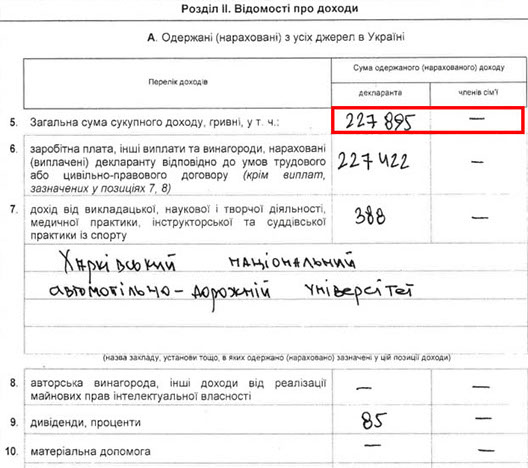 Розділ II. Відомості про доходи
А. Одержані (нараховані) з усіх джерел в Україні
Перелік доходів
Сума одержаного (нарахованого) доходу
декларанта
членів сім'ї
5. Загальна сума сукупного доходу, гривні, у т. ч.: 227 895 —
6. заробітна плата, інші виплати та винагороди, нараховані
(виплачені) декларанту відповідно до умов трудового
або цивільно-правового договору (крім виплат,
зазначених у позиціях 7, 8)
227 422 —
7. дохід від викладацької, наукової і творчої діяльності,
медичної практики, інструкторської та суддівської
практики із спорту
388 —
Харківський національний
автомобільно-дорожній університет
(назва закладу, установи тощо, в яких одержано (нараховано) зазначені у цій позиції доходи)
8. авторська винагорода, інші доходи від реалізації
майнових прав інтелектуальної власності
— —
9. дивіденди, проценти 85 —
10. матеріальна допомога — —